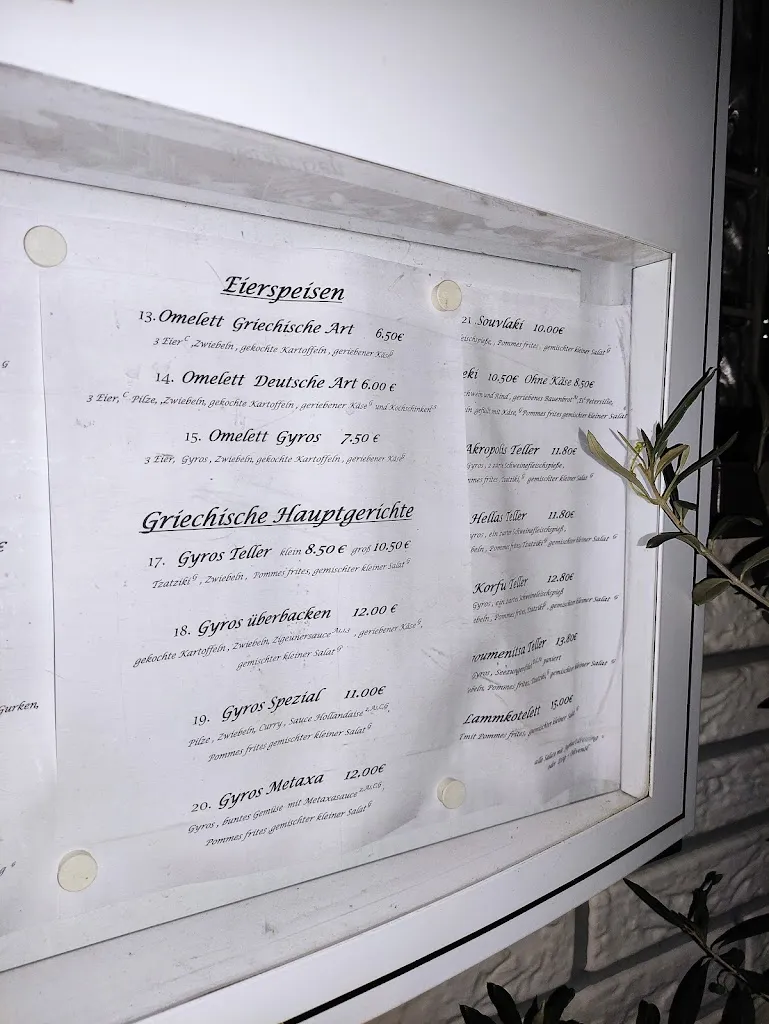 Eierspeisen
13. Omelett Griechische Art 6.50€
3 Eier C, Zwiebeln, gekochte Kartoffeln, geriebener Käse G
14. Omelett Deutsche Art 6.00 €
3 Eier, C Pilze, Zwiebeln, gekochte Kartoffeln, geriebener Käse G und Kochschinken
15. Omelett Gyros 7.50 €
3 Eier, Gyros, Zwiebeln, gekochte Kartoffeln, geriebener Käse G
Griechische Hauptgerichte
17. Gyros Teller klein 8.50 € groß 10.50 €
Tzatziki G, Zwiebeln, Pommes frites, gemischter kleiner Salat G
18. Gyros überbacken 12.00 €
gekochte Kartoffeln, Zwiebeln, Zigeunersauce, geriebener Käse G,
gemischter kleiner Salat G
19. Gyros Spezial 11.00€
Pilze, Zwiebeln, Curry, Sauce Hollandaise
Pommes frites gemischter kleiner Salat G
20. Gyros Metaxa 12.00€
Gyros, buntes Gemüse mit Metaxasauce
Pommes frites gemischter kleiner Salat G
21. Souvlaki 10.00€
Pommes frites, gemischter kleiner Salat G
eki 10.50€ Ohne Käse 8.50€
Schwein und Rind, geriebenes Bauernbrot Petersilie,
gefüllt mit Käse, G Pommes frites gemischter kleiner Salat
Akropolis Teller 11.80€
Gyros, 2 zarte Schweinefleischspieße,
Pommes frites, Tzatziki, G gemischter kleiner Salat G
Hellas Teller 11.80€
Gyros, ein zarter Schweinefleischspieß,
Pommes frites, Tzatziki G gemischter kleiner Salat G
Korfu Teller 12.80€
Gyros, ein zarter Schweinefleischspieß
Pommes frites, Tzatziki, G gemischter kleiner Salat G
oumenitsa Teller 13.80€
Gyros, paniert
Pommes frites, Tzatziki, G gemischter kleiner Salat
Lammkotelett 15.00€
mit Pommes frites, gemischter kleiner Salat G
alle Salate mit
Gurken,